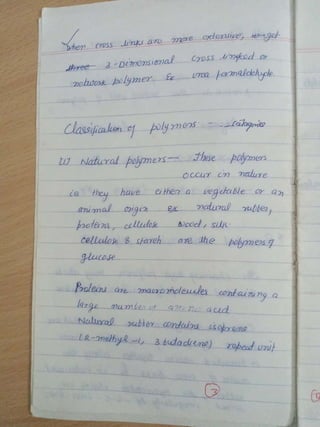 When cross links are more extensive, we get
3-Dimensional cross linked or
network polymer Ex urea formaldehyde
Classification of polymers - categories
(1) Natural polymers - These polymers
occur in nature
ie they have either a vegetable or an
animal origin Ex natural rubber,
proteins, cellulose wood, silk
cellulose & starch are the polymers of
glucose
Proteins are macromolecules containing a
large number of amino acid
Natural rubber contains isoprene
(2-methyl-1, 3 butadiene) repeat unit
3